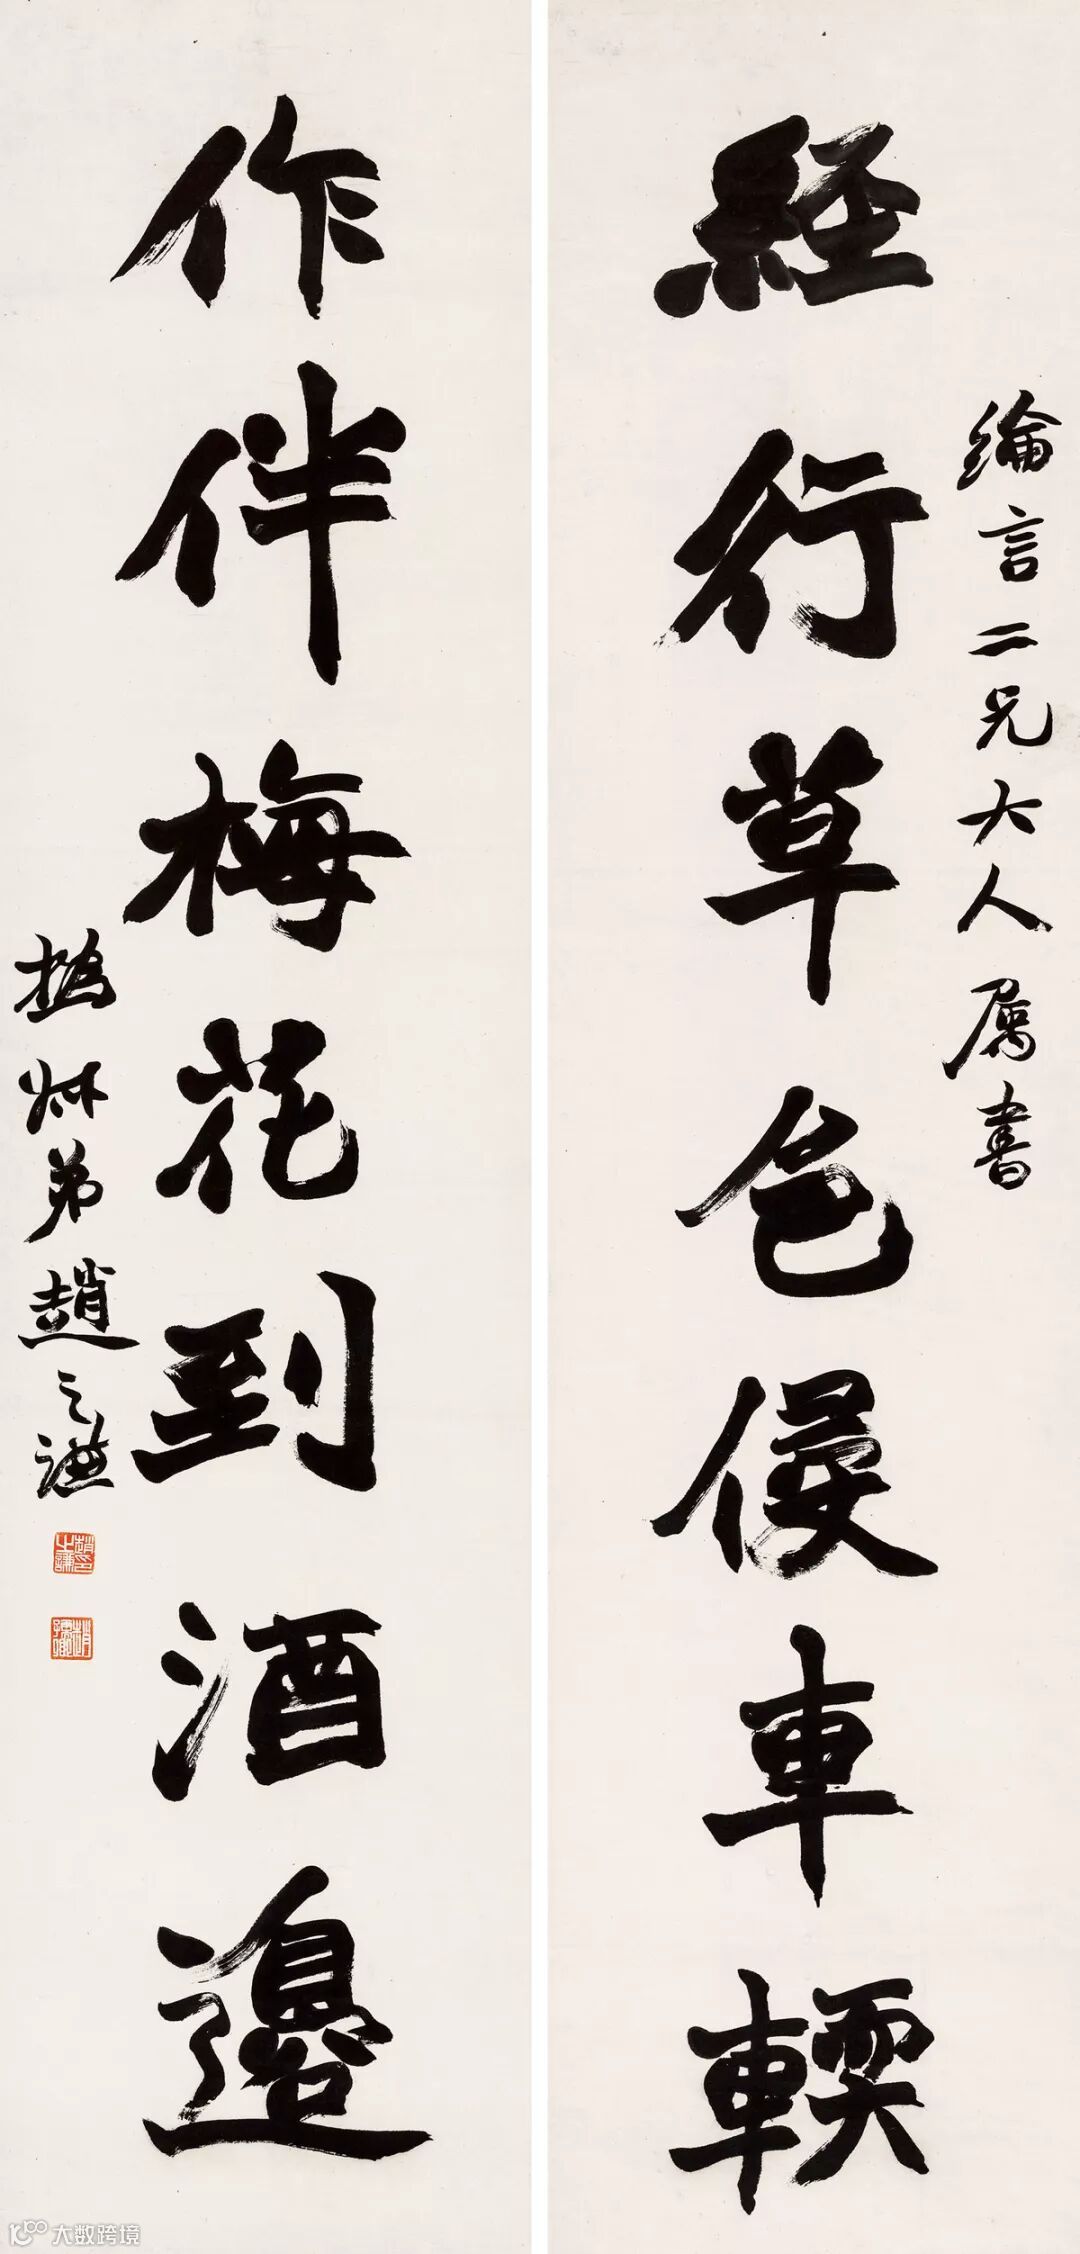 綸言二兄大人属書
經行草色侵車輭
作伴梅花到酒邊
撝叔弟趙之謙
趙印之謙
大数跨境